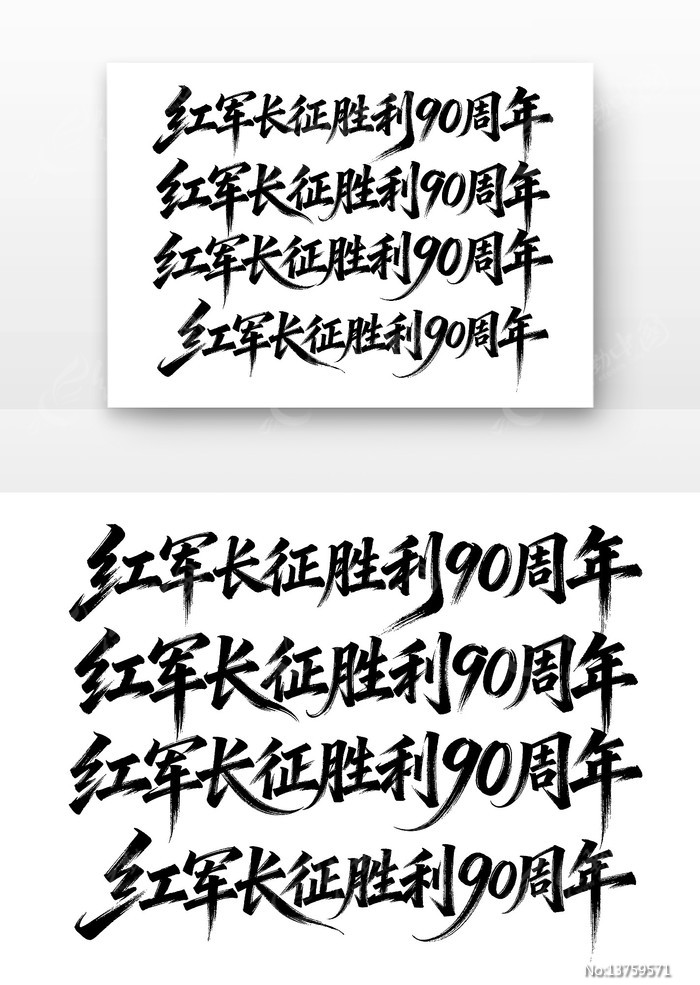 红军长征胜利90周年
红军长征胜利90周年
红军长征胜利90周年
红军长征胜利90周年
红军长征胜利90周年
红军长征胜利90周年
红军长征胜利90周年
红军长征胜利90周年
No:13759571